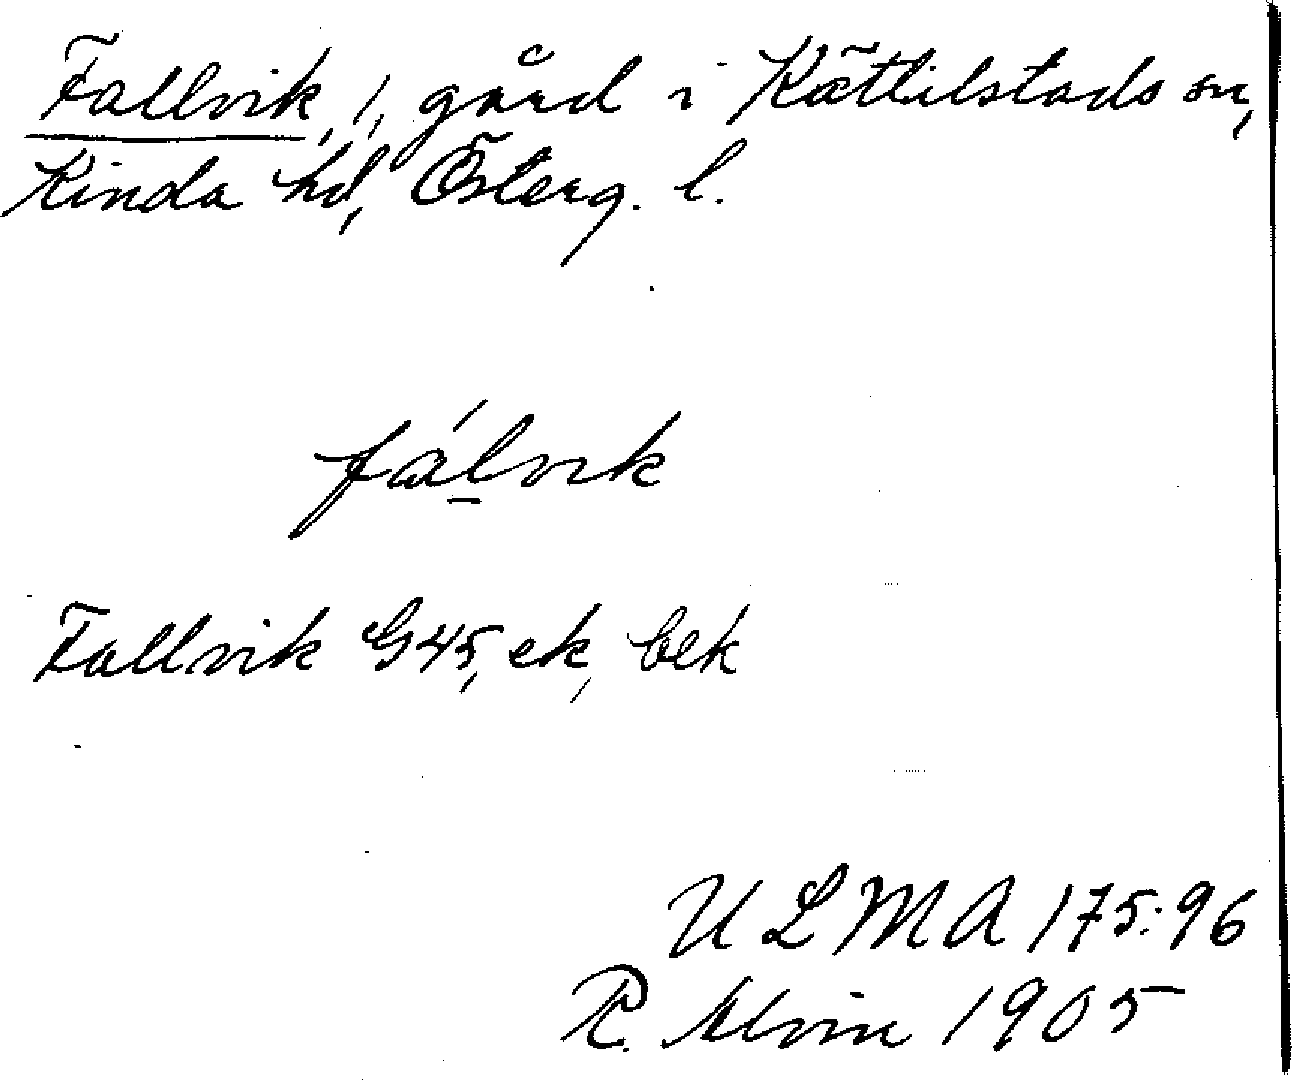 Fallvik, 1, gård i Kättilstads sn,
Kinda hd, Österg. l.
fálvik
Fallvik G45, ek, bek
ULMA 175:96
R. Alvin 1905